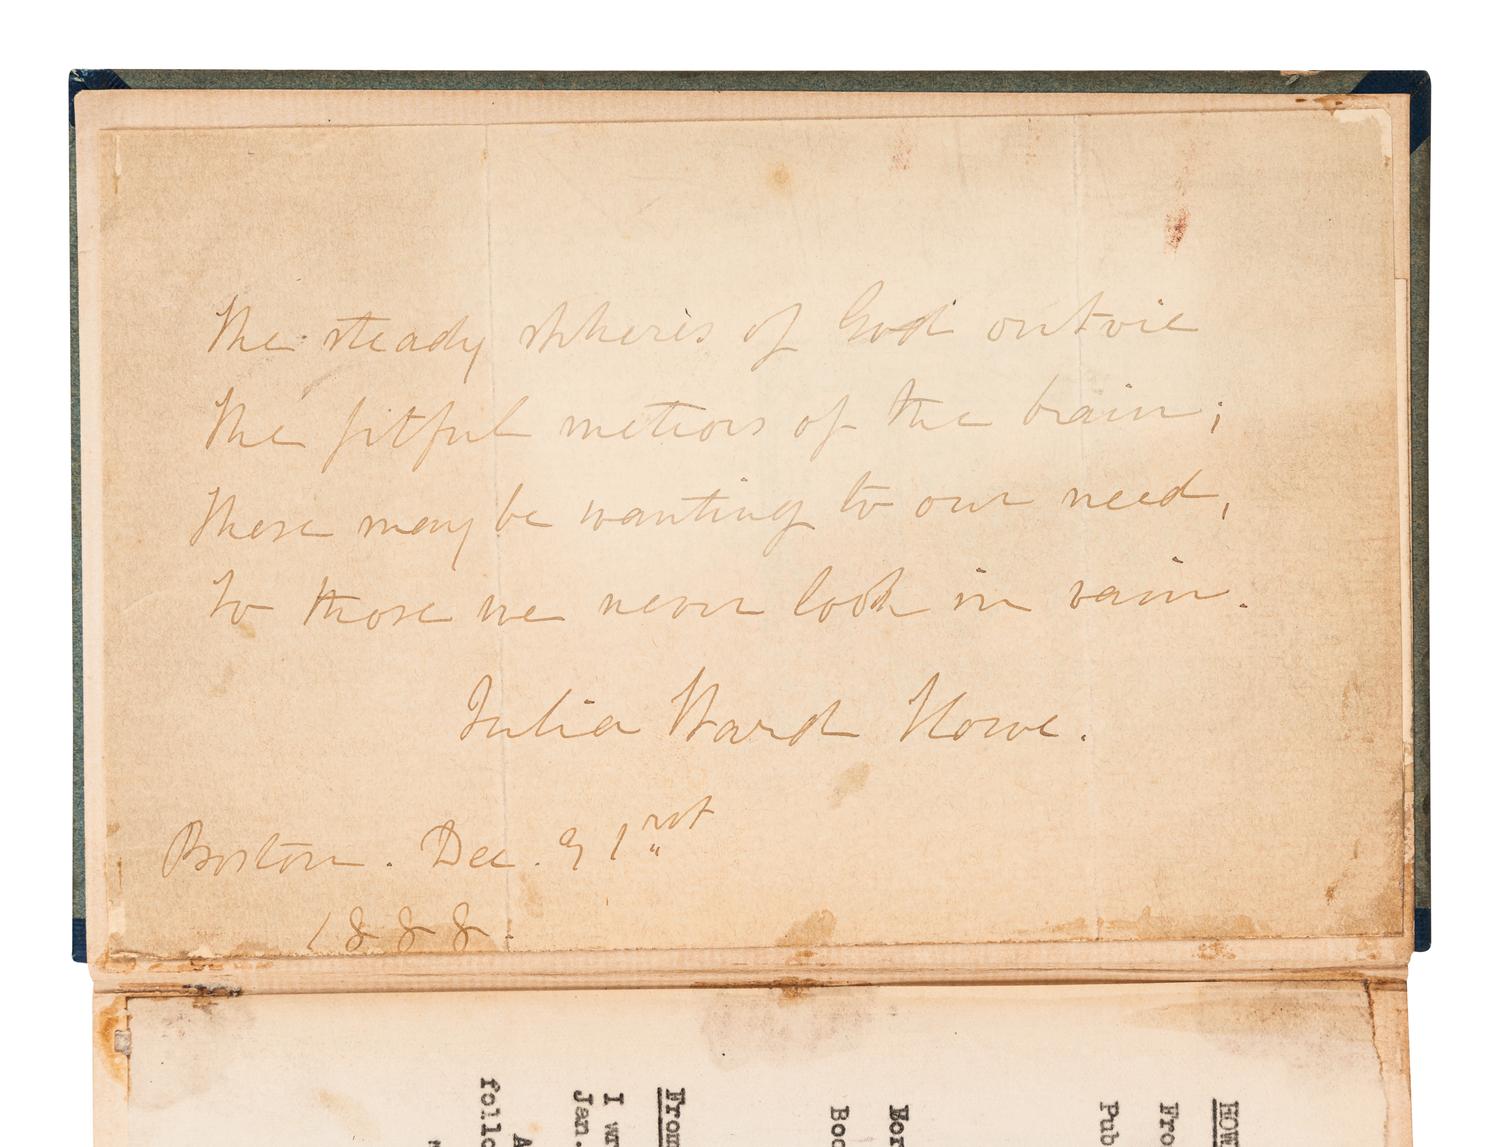 The steady spheres of God outvie
The fitful meteors of the brain;
These may be wanting to our need,
To those we never look in vain.
Julia Ward Howe.
Boston. Dec.
1888.
HOW
Fro
Pub
Bor
Boo
From
I wr
Jan.
A
follo